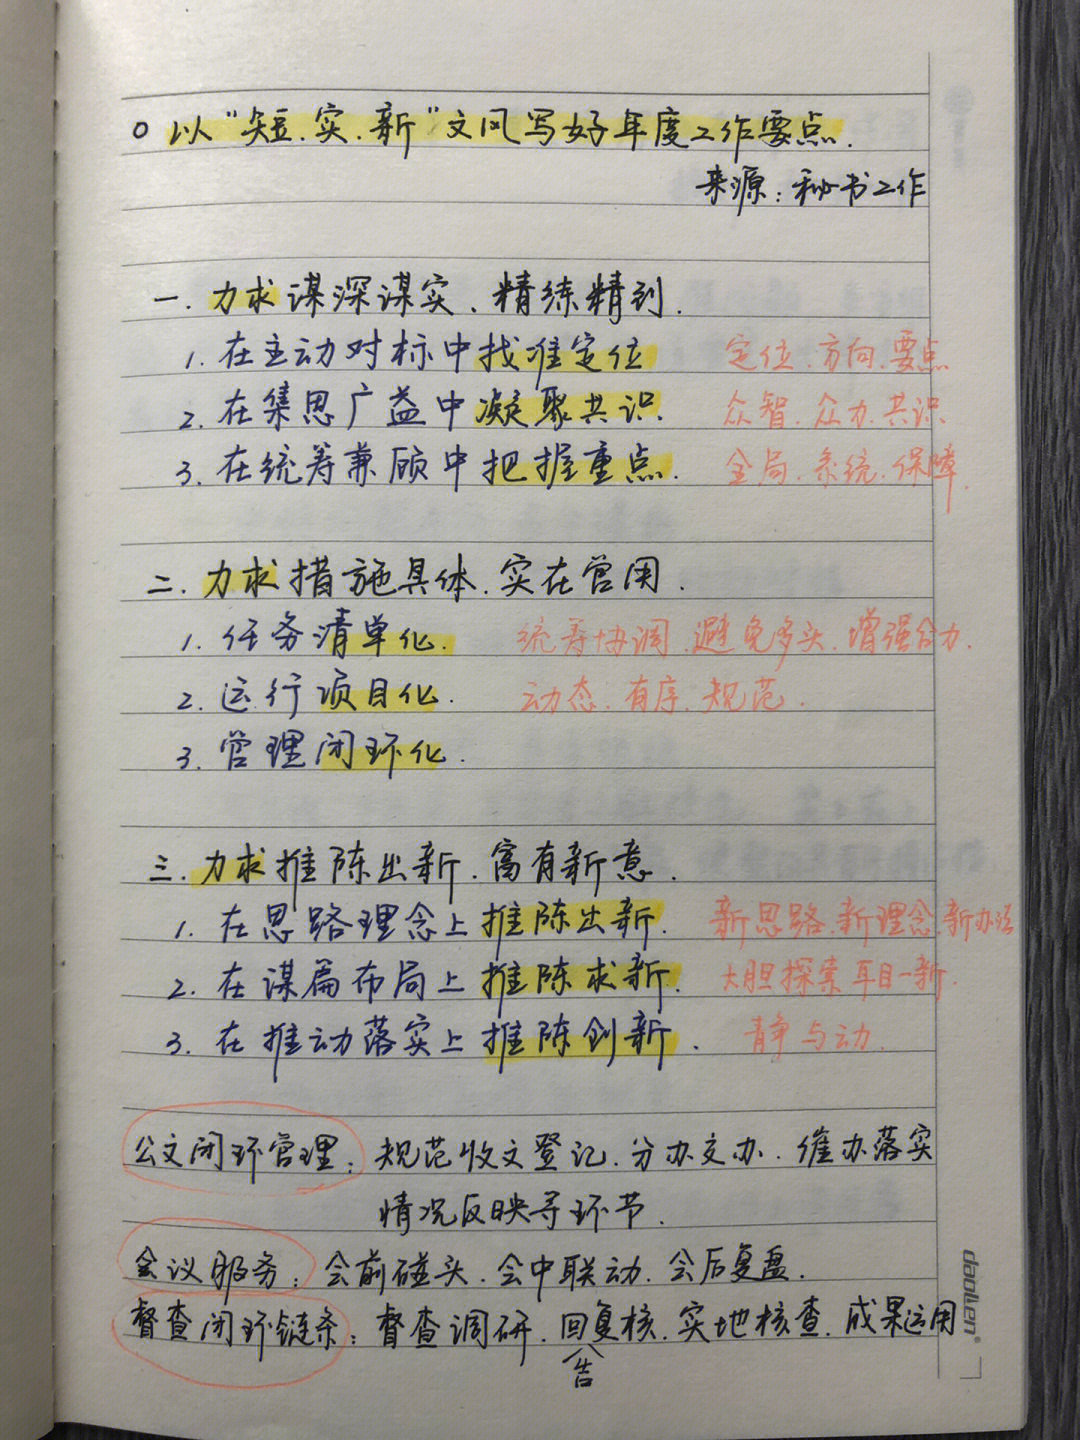 ○ 以“短、实、新”文风写好年度工作要点.
来源:秘书工作
一.力求谋深谋实、精练精到.
1.在主动对标中找准定位 定位.方向.要点
2.在集思广益中凝聚共识. 众智.众力.共识
3.在统筹兼顾中把握重点. 全局.系统.保障.
二.力求措施具体.实在管用.
1.任务清单化. 统筹协调.避免多头.增强合力.
2.运行项目化. 动态.有序.规范.
3.管理闭环化.
三.力求推陈出新.富有新意.
1.在思路理念上推陈出新. 新思路.新理念.新办法
2.在谋篇布局上推陈求新. 大胆探索 耳目一新.
3.在推动落实上推陈创新. 静与动.
公文闭环管理:规范收文登记.分办交办.催办落实
情况反映等环节.
会议服务:会前碰头.会中联动.会后复盘.
督查闭环链条:督查调研.回告复核.实地核查.成果运用
daolien®